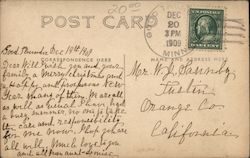 20.00
POST CARD
DEC
20
3 PM
1909
MINN.
Dec 19th 1909
CORRESPONDENCE HERE
NAME AND ADDRESS HERE
Dear Will I wish you and your
family a Merry Christmas and
a Happy and prosperous New
Year many of them. We are all
as well as usual. I have had
a busy summer, no one to
take care and responsibility
for me now. Hope you are
all well. Much love to you
and all from
Mrs. W.
Tustin
Orange Co.
California.